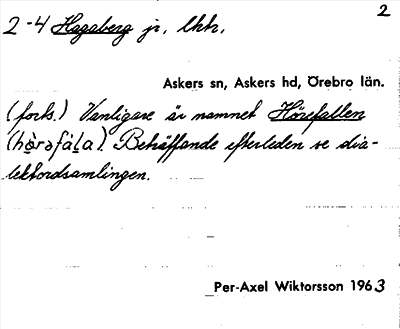 2
2-4 Hagaberg jr, lhh,
Askers sn, Askers hd, Örebro län.
(forts.) Vanligare är namnet Hörefallen
(hò̤rəfäl̠a). Beträffande efterleden se dia-
lektordsamlingen.
Per-Axel Wiktorsson 1963